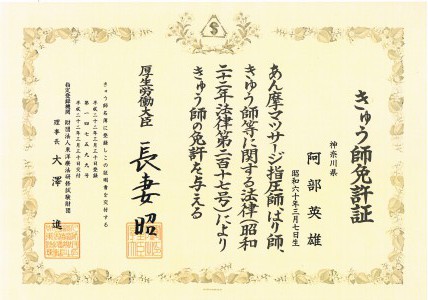 きゅう師免許証
神奈川県
阿部英雄
昭和六十年三月七日生
あん摩マツサージ指圧師、はり師、
きゅう師等に関する法律(昭和
二十二年法律第二百十七号)により
きゅう師の免許を与える
厚生労働大臣
長妻昭
きゅう師名簿に登録しこの証明書を交付する
平成二十二年三月三十日登録
第一四七五五九号
平成二十二年三月三十日交付
指定登録機関
財団法人東洋療法研修試験財団
理事長
大澤進